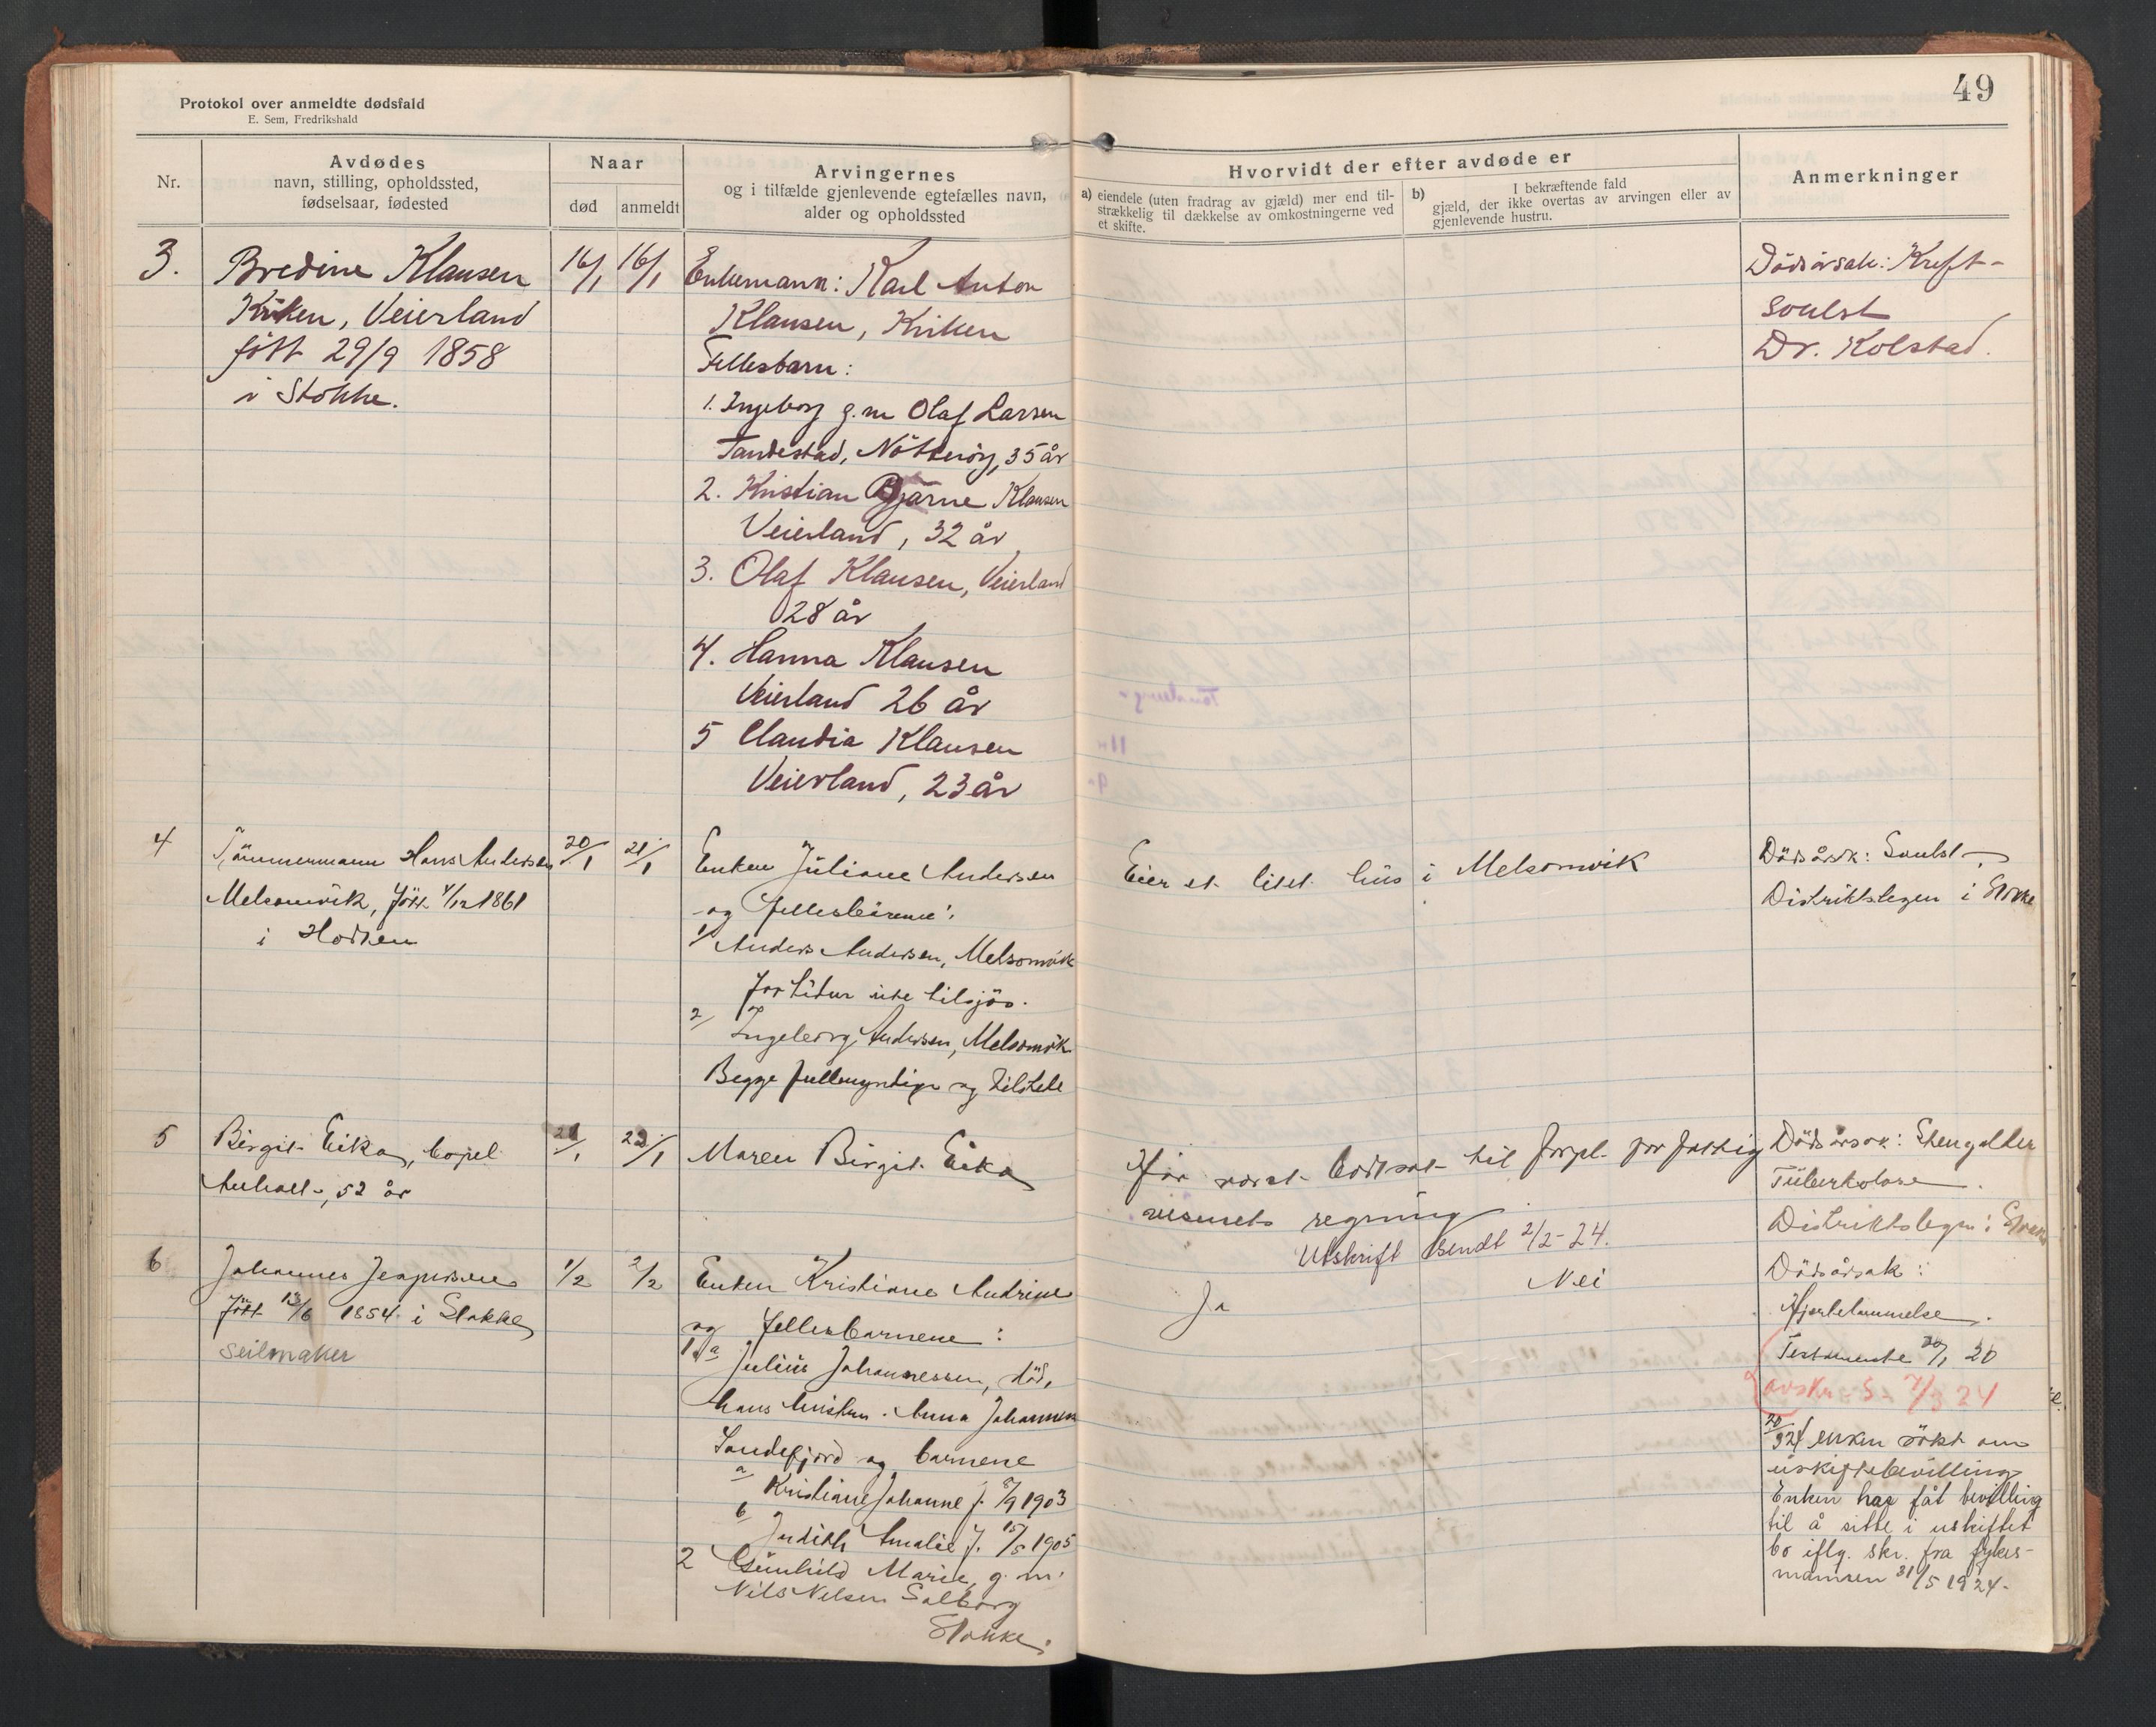 49
Protokol over anmeldte dødsfald
E. Sem, Fredrikshald
Nr.
Avdødes
navn, stilling, opholdssted,
fødselsaar, fødested
Naar
død
anmeldt
Arvingernes
og i tilfælde gjenlevende egtefælles navn,
alder og opholdssted
Hvorvidt der efter avdøde er
a) eiendele (uten fradrag av gjæld) mer end til-
strækkelig til dækkelse av omkostningerne ved
et skifte.
b) I bekræftende fald
gjæld, der ikke overtas av arvingen eller av
gjenlevende hustru.
Anmerkninger
3.
Bredine Klausen
Kriken, Veierland
født 29/9 1858
i Stokke.
16/1
16/1
Enkemann: Karl Anton
Klausen, Kriken
Fellesbarn:
1. Ingeborg g.m Olaf Larsen
Tandestad, Nötteröy, 35 år
2. Kristian Bjarne Klausen
Veierland, 32 år
3. Olaf Klausen, Veierland
28 år
4. Hanna Klausen
Veierland 26 år
5 Claudia Klausen
Veierland, 23 år
Dödsårsak: Kreft-
svulst
Dr. Kolstad.
4
Tömmermann Hans Andersen
Melsomvik, født /12 1861
i Hodnen
20/1
21/1
Enken Juliane Andersen
og fellesbarnene:
1/ Anders Andersen, Melsomvik
for tiden ute tilsjös.
2/ Ingeborg Andersen, Melsomvik
Begge fullmyndige og tilstede
Eier et litet hus i Melsomvik
Dödsårsk: Svulst
Distriktslegen i Stokke
5
Birgit Eika,
52 år
21/1
22/1
Maren Birgit Eika
Har vært bortsat til forpl. for fattig
vesenets regning
Utskrift sendt 2/2-24.
Dödsårsak:
Tuberkolose
Distriktslegen i Stokke
6
Johannes Jespersen
født 13/6 1854 i Stokke
seilmaker
1/2
2/2
Enken Kristiane Andrine
og fellesbarnene:
1. a Julius Johannessen, död,
hans hustru Anna Johannessen
Sandefjord og barnene
a Kristiane Johanne f. /9 1903
b Judith Amalie f. 15/5 1905
2 Gunhild Marie, g. m.
Nils Nilsen Solberg
Stokke.
Ja
Nei
Dödsårsak:
Hjertelammelse.
Testamente 20/1 20
avskr. S. 7/3 24
20/3 24 enken sökt om
uskiftebevilling
Enken har fåt bevilling
til å sitte i uskiftet
bo iflg. skr. fra fylkes-
mannen 31/5 1924.